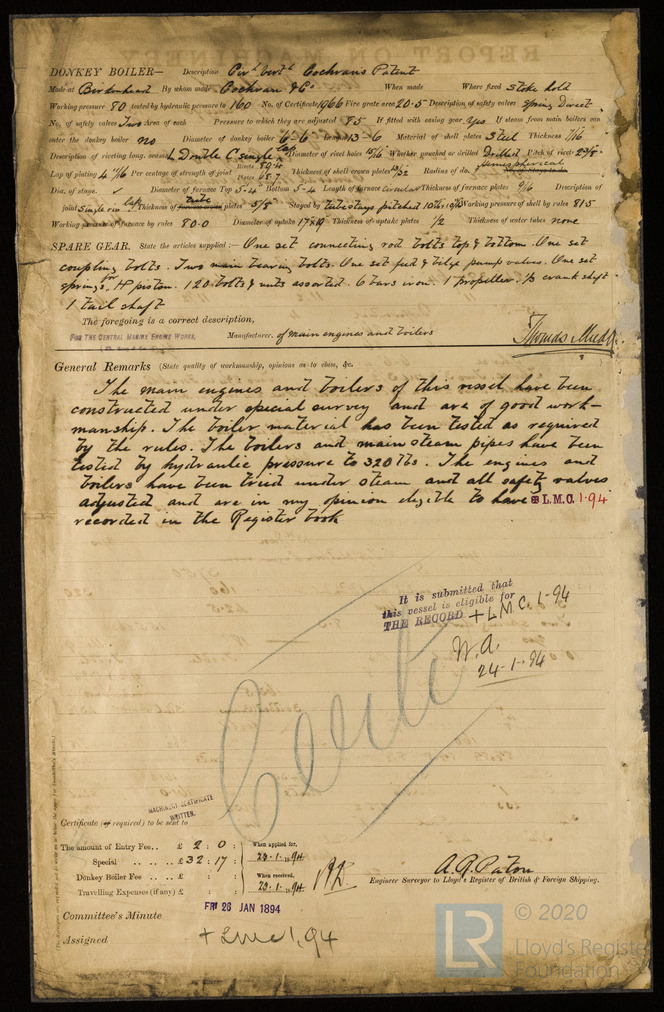 DONKEY BOILER— Description Cirr Vertl Cochrans Patent
Made at Birkenhead By whom made Cochran & Co When made Where fixed stoke hold
Working pressure 80 tested by hydraulic pressure to 160 No. of Certificate 1966 Fire grate area 20.5 Description of safety valves Spring Direct
No. of safety valves Two Area of each Pressure to which they are adjusted 85 If fitted with easing gear yes If steam from main boilers can
enter the donkey boiler no Diameter of donkey boiler 6-6 Length 13-6 Material of shell plates Steel Thickness 7/16
Description of riveting long. seams L Double C single lap Diameter of rivet holes 15/16 Whether punched or drilled Drilled Pitch of rivets
Lap of plating 4 1/16 Per centage of strength of joint Rivets Plates 68.7 Thickness of shell crown plates Radius of do. hemispherical
Dia. of stays. ✓ Diameter of furnace Top 5-4 Bottom 5-4 Length of furnace circular Thickness of furnace plates 9/16 Description of
joint single riv lap Thickness of tube plates 5/8 Stayed by tube stays pitched Working pressure of shell by rules 81.5
Working pressure of furnace by rules 80.0 Diameter of uptake 17x19 Thickness of uptake plates 1/2 Thickness of water tubes none
SPARE GEAR. State the articles supplied:— One set connecting rod bolts top & bottom. One set
coupling bolts. Two main bearing bolts. One set feed & bilge pump valves. One set
springs for HP piston. 120 bolts & nuts assorted. 6 bars iron. 1 propeller. 1/3 crank shaft.
1 tail shaft
The foregoing is a correct description,
FOR THE CENTRAL MARINE ENGINE WORKS, Manufacturer. of main engines and boilers Thomas Mudd.
General Remarks (State quality of workmanship, opinions as to class, &c.
The main engines and boilers of this vessel have been
constructed under special survey and are of good work-
manship. The boiler material has been tested as required
by the rules. The boilers and main steam pipes have been
tested by hydraulic pressure to 320 lbs. The engines and
boilers have been tried under steam and all safety valves
adjusted and are in my opinion eligible to have ✠ L.M.C. 1.94
recorded in the Register book
It is submitted that
this vessel is eligible for
THE RECORD + L.M.C. 1-94
W.A.
24-1-94
MACHINERY CERTIFICATE
WRITTEN.
Certificate (if required) to be sent to
The amount of Entry Fee.. £ 2 : 0 : When applied for,
Special .. .. .. £ 32 : 17 : 23.1.1894
Donkey Boiler Fee .. .. £ : : When received,
Travelling Expenses (if any) £ : : 23.1.1894
A. R. Paton
Engineer Surveyor to Lloyd's Register of British & Foreign Shipping.
Committee's Minute FRI 26 JAN 1894
Assigned + LMC 1,94
LR © 2020
Lloyd's Register
Foundation